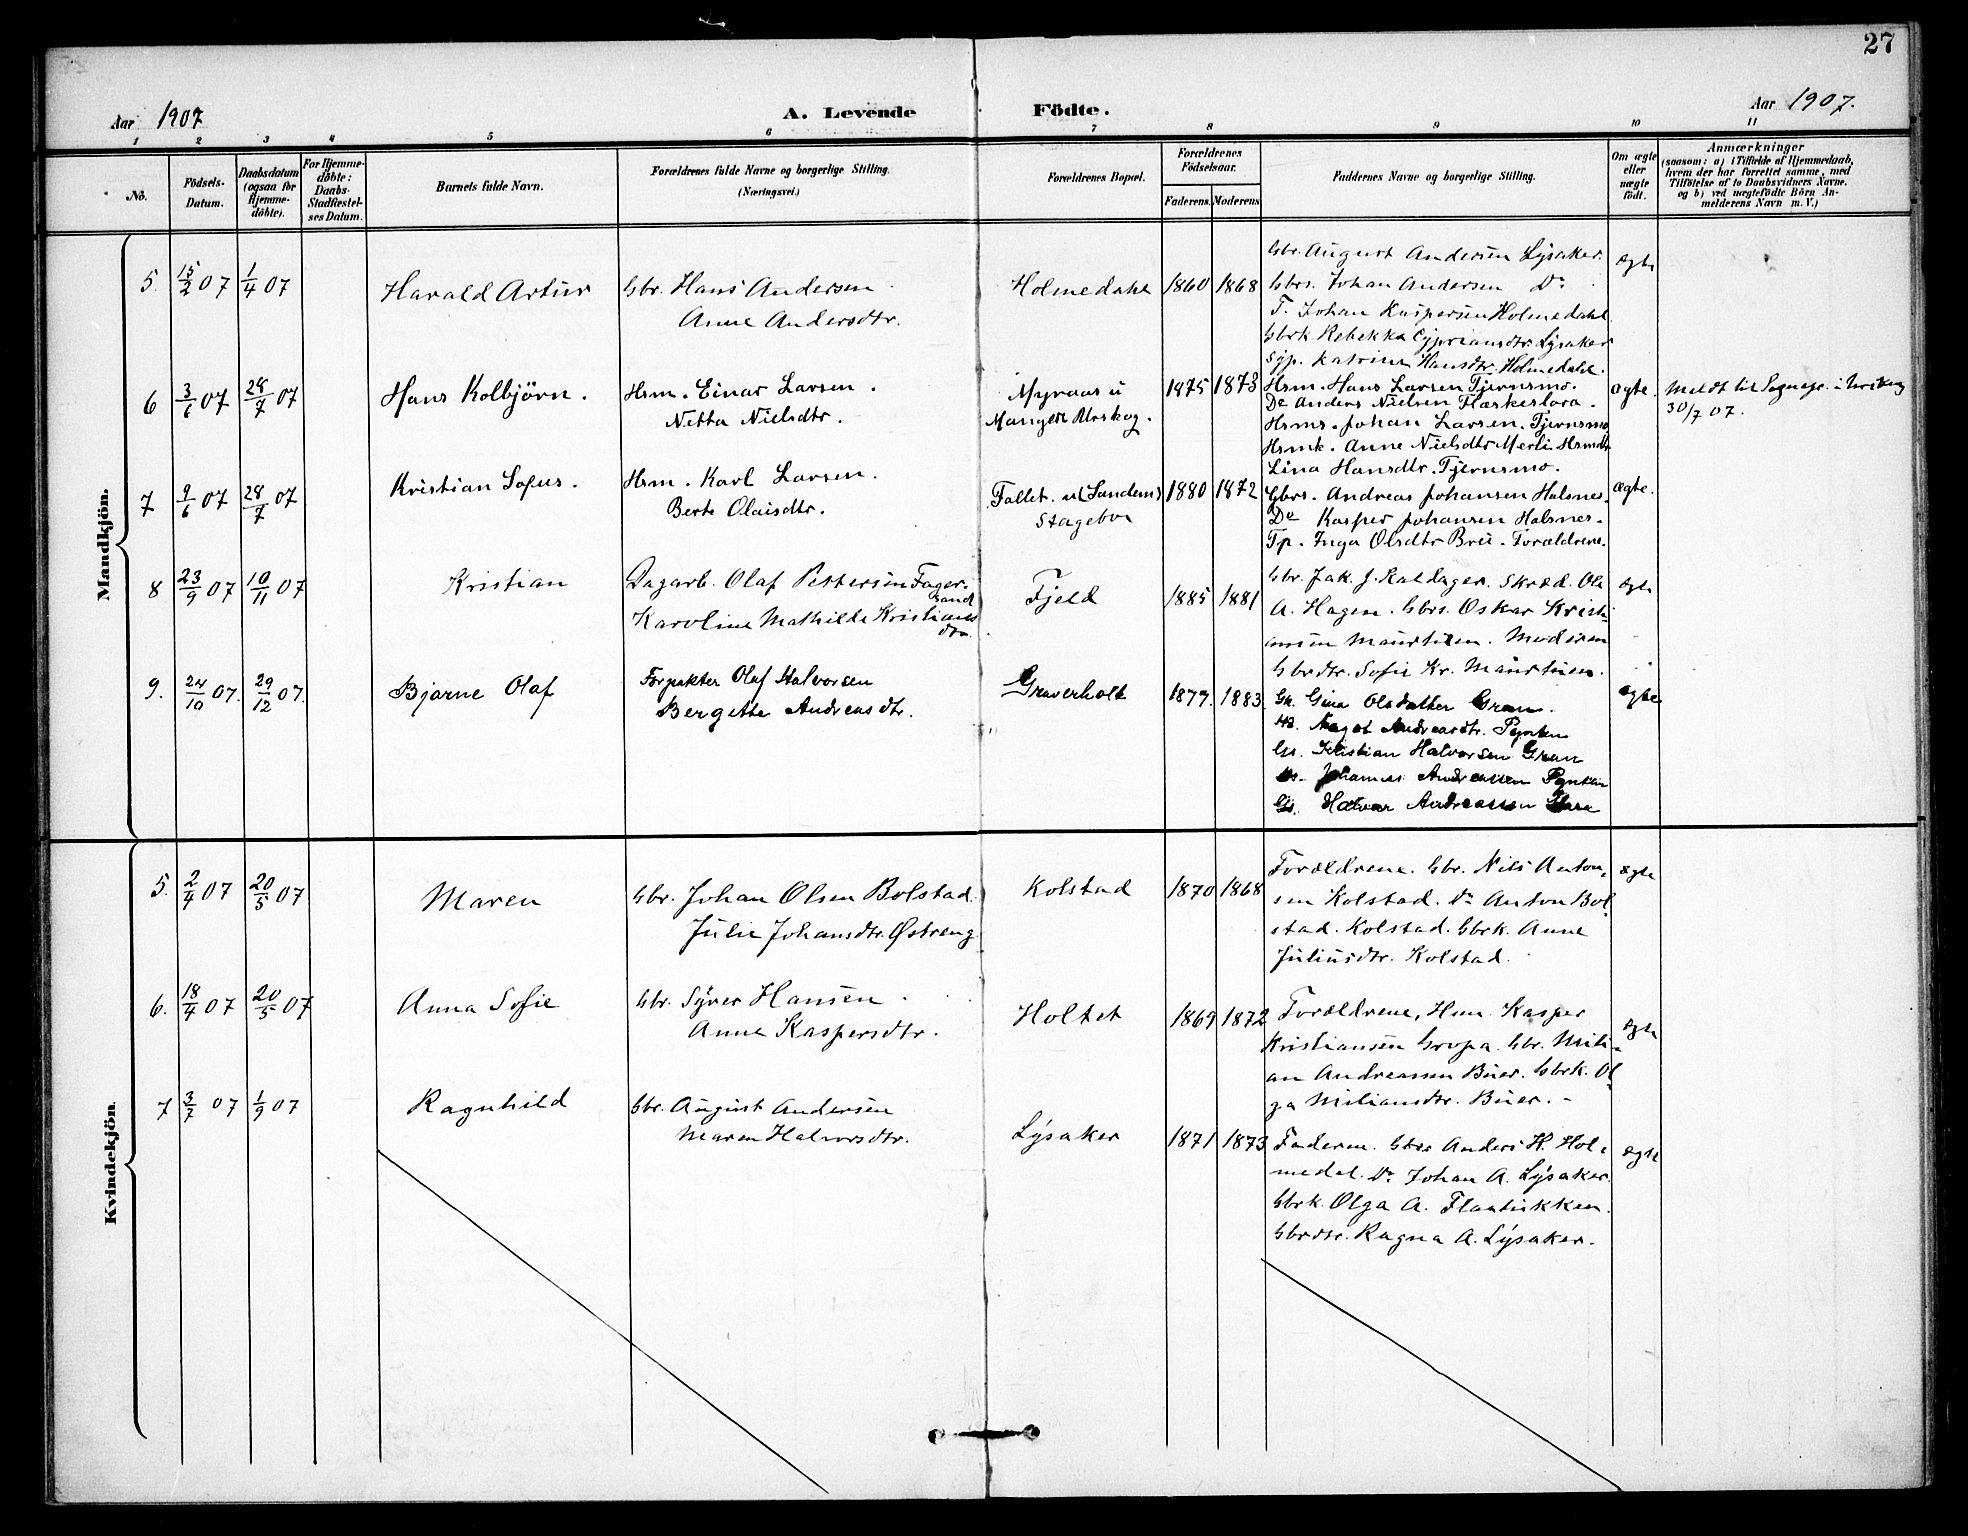 27
Aar 1907
A. Levende Födte.
Aar 1907.
1 2 3 4 5 6 7 8 9 10 11
No.
Födsels-
Datum.
Daabsdatum
(ogsaa for
Hjemme-
döbte).
For Hjemme-
döbte:
Daabs-
Stadfæstel-
ses Datum.
Barnets fulde Navn.
Forældrenes fulde Navne og borgerlige Stilling.
(Næringsvei.)
Forældrenes Bopæl.
Forældrenes
Födselsaar.
Faderens. Moderens.
Faddernes Navne og borgerlige Stilling.
Om ægte
eller
uægte
födt.
Anmærkninger
(saasom: a) i Tilfælde af Hjemmedaab,
hvem der har forrettet samme, med
Tilföielse af to Daabsvidners Navne.
og b) ved uægtefödte Börn An-
melderens Navn m. V.)
Mandkjön.
5. 15/2 07 1/4 07
Harald Artur
Gbr. Hans Andersen
Anne Andersdtr.
Holmedahl
1860 1868
Gbr. August Andersen Lysaker.
Gbrs. Johan Andersen Do
T. Johan Kaspersen Holmedahl
Gbrk Rebekka Cypriansdtr. Lysaker
Syp. Katrine Hansdtr. Holmedahl.
ægte
6 3/6 07 28/7 07
Hans Kolbjörn.
Hsm. Einar Larsen.
Netta Nielsdtr.
Myraas u
Mangen Urskog.
1875 1873
Hsm. Hans Larsen Tjernsmo.
Do Anders Nielsen
Hsms. Johan Larsen. Tjernsmo
Hsmk. Anne Nielsdtr Merli Hsmdtr
Lina Hansdtr. Tjernsmo.
ægte.
Meldt til Sognepr. i Urskog
30/7 07.
7 9/6 07 28/7 07
Kristian Sofus.
Hsm. Karl Larsen.
Berte Olaisdtr.
Fallet. u (Sandem)
Stagebo
1880 1872
Gbrs. Andreas Johansen Halsnes.
Do Kasper Johansen Halsnes.
Tp. Inga Olsdtr Breu. Forældrene.
ægte.
8 23/9 07 10/11 07
Kristian
Dagarb. Olaf Pettersen Fager-
sand
Karoline Mathilde Kristians
dtr.
Fjeld
1885 1881
Gbr. Jak. J. Kaldager. Skræd. Ole
A. Hagen. Gbrs. Oskar Kristi-
ansen Maurtuen. Moderen
Gbrdtr. Sofie Kr. Maurtuen.
ægte
9. 24/10 07. 29/12 07.
Bjarne Olaf
Forpakter Olaf Halvorsen
Bergette Andreasdtr.
Graverholt
1877. 1883
Gk. Gina Olsdatter Gran.
Magot Andreasdtr. Pynten
Gs. Kristian Halvorsen Gran
Johannes Andreassen Pynten
Gs. Halvor Andreassen
ægte
Kvindekjön.
5. 2/4 07 20/5 07
Maren
Gbr. Johan Olsen Bolstad
Julie Johansdtr. Østreng
Kolstad
1870 1868
Forældrene. Gbr. Nils Anton-
sen Kolstad. Do Anton Bol-
stad. Kolstad. Gbrk. Anne
Juliusdtr. Kolstad.
ægte
6. 18/4 07 20/5 07
Anna Sofie
Gbr. Syver Hansen.
Anne Kaspersdtr.
Holtet
1869 1872
Forældrene, Hsm. Kasper
Kristiansen Gropa. Gbr. Mili-
an Andreassen Buer. Gbrk. Ol-
ga Miliansdtr. Buer.-
ægte
7 3/7 07 1/9 07
Ragnhild
Gbr. August Andersen
Maren Halvorsdtr.
Lysaker
1871 1873
Faderen. Gbrs Anders H. Hol-
medal. Do Johan A. Lysaker.
Gbrk. Olga A. Flatukken.
Gbrdtr. Ragna A. Lysaker.
ægte